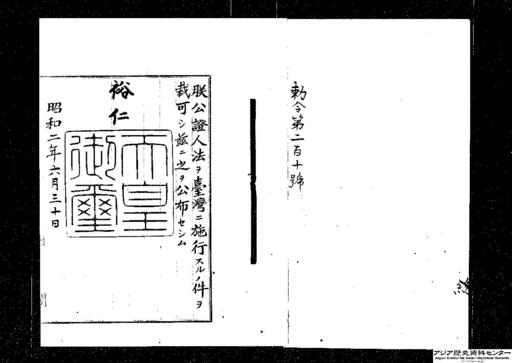 勅令第二百十號
朕公證人法ヲ臺灣ニ施行スルノ件ヲ
裁可シ茲ニ之ヲ公布セシム
裕仁
天皇
御璽
昭和二年六月三十日
アジア歴史資料センター
Japan Center for Asian Historical Records